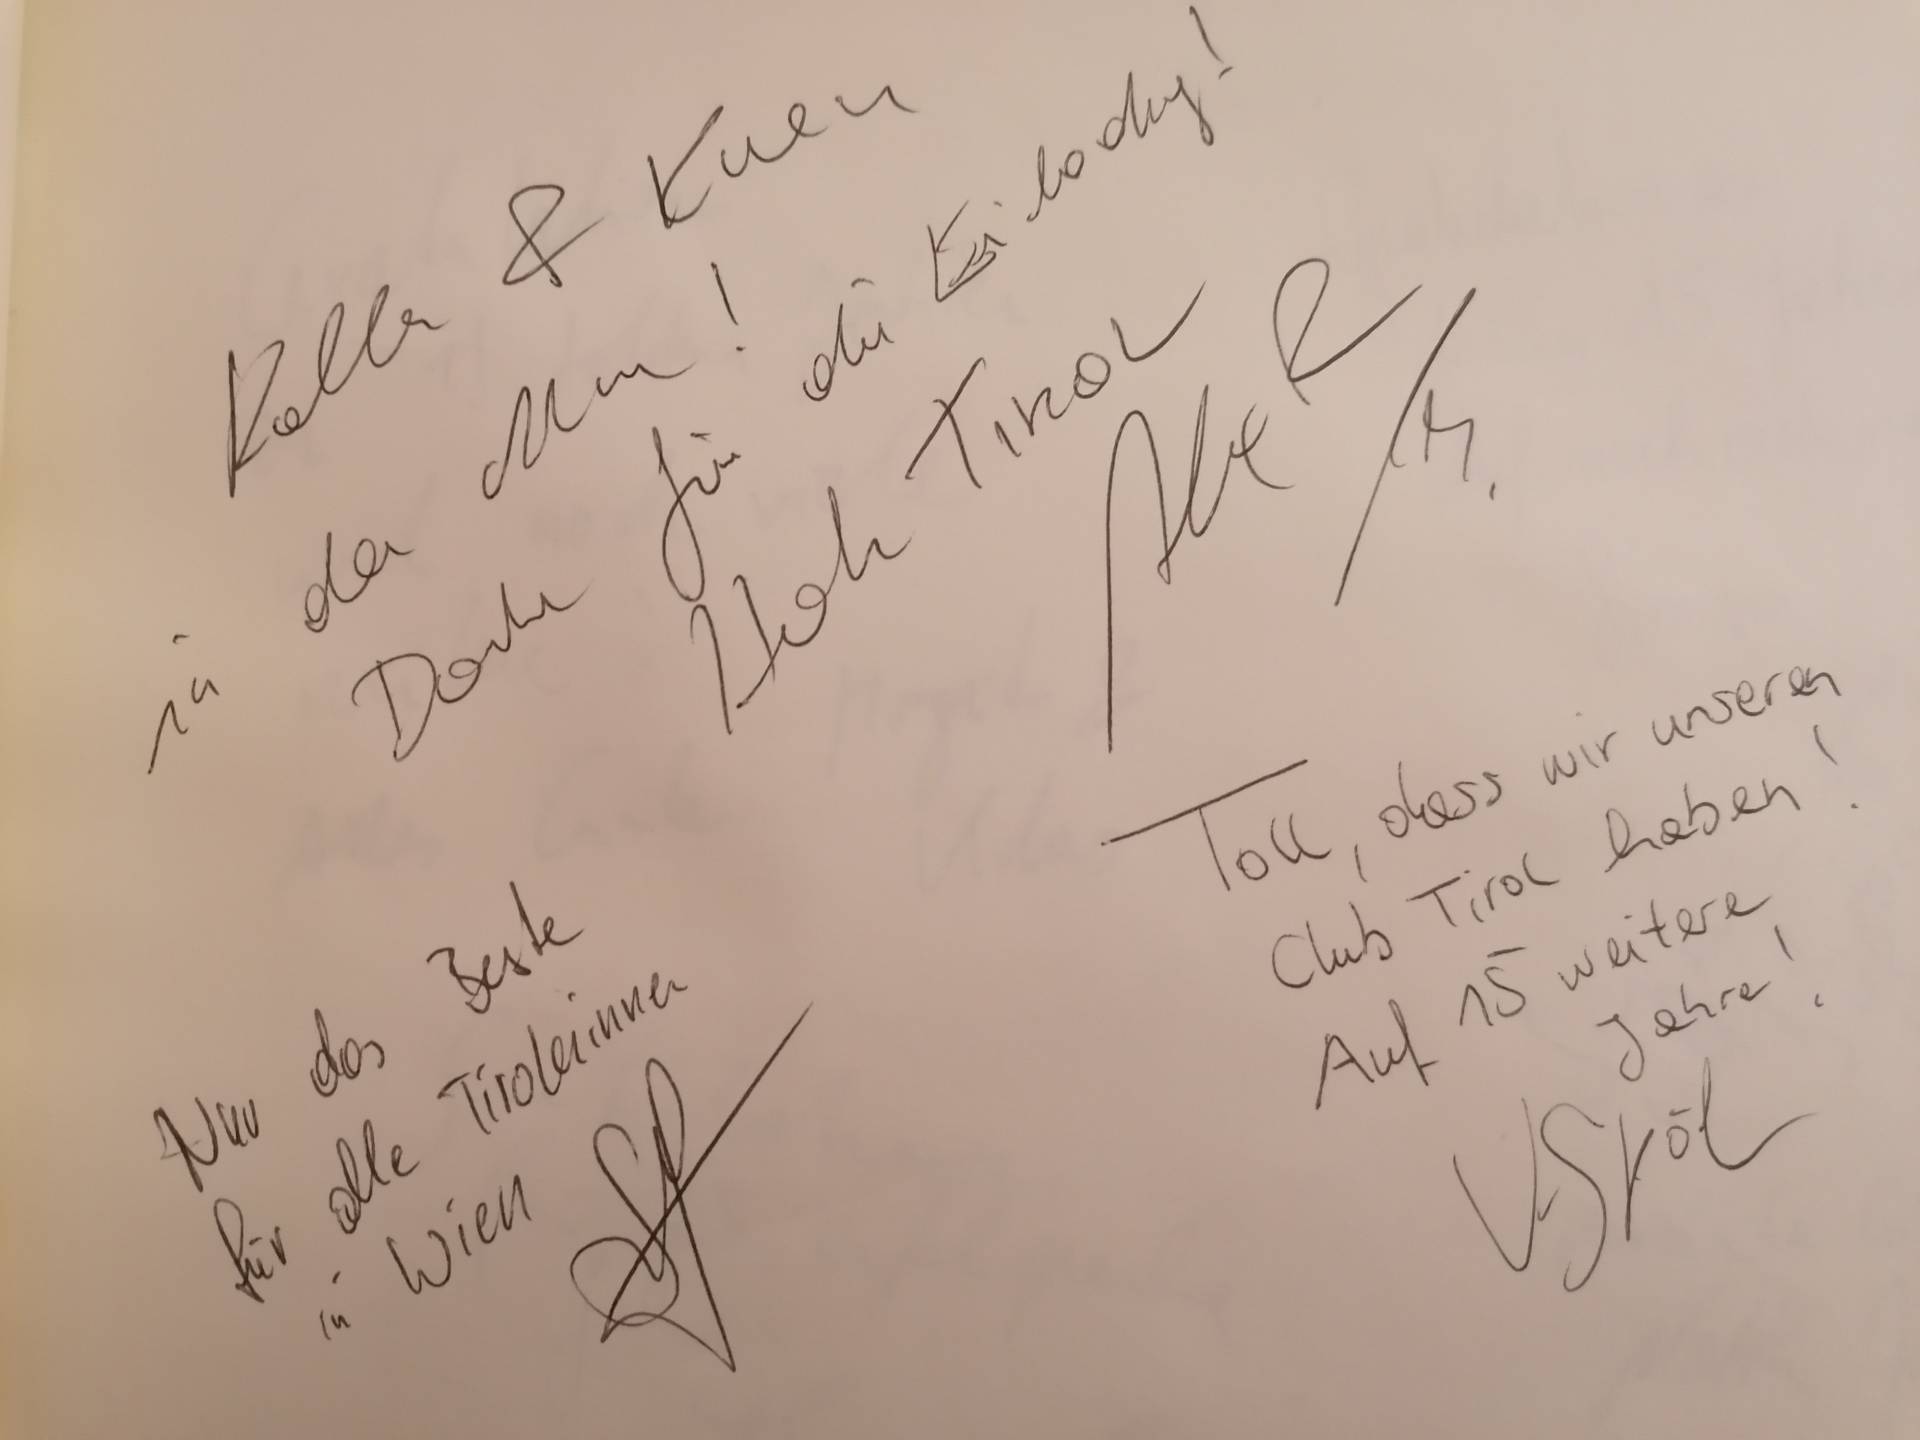 & Kuen
in der
Danke für die Einladung!
Hoch TIROL
Toll, dass wir unseren
Club Tirol haben!
Auf 15 weitere
Jahre!
VSköl
Nur das Beste
für alle Tirolerinnen
in Wien